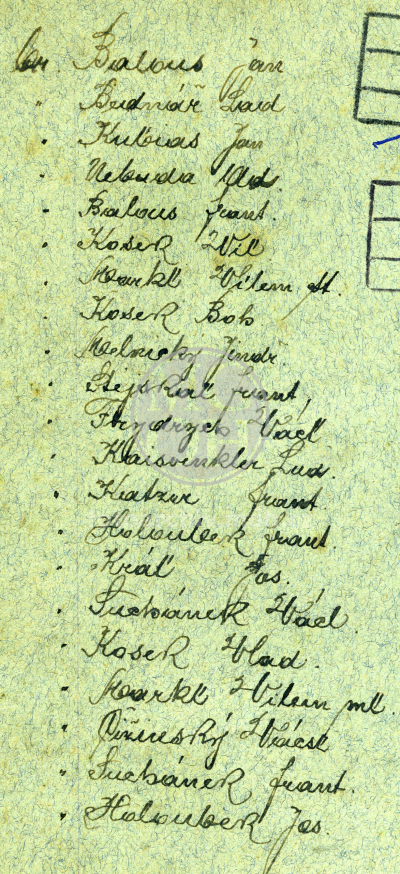 br. Balous Jan
" Bednář Lad
" Kubuas Jan
" Nebuda Vlad.
" Balous frant.
" Kosek Vil
" Markl Vilem st.
" Kosek Boh
" Melnicky Jindr.
" Štejskal frant,
" Frydrych Václ
" Kaisvinkler Lud.
" Katzer frant.
" Holoubek frant.
" Král Jos.
" Suchánek Václ.
" Kosek Vlad.
" Markl Vilem ml.
" Václ
" Suchánek frant.
" Holoubek Jos.